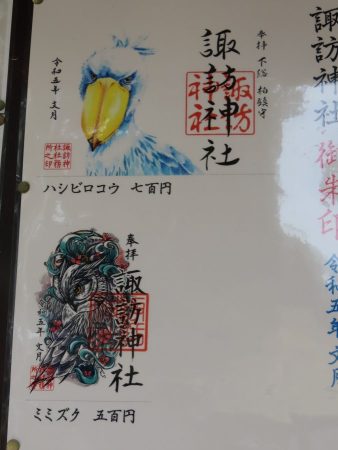 諏訪神社 御朱印
令和五年 文月
奉拝 下総 柏鎮守
諏訪神社
諏訪神社
令和五年 文月
諏訪神
社社務
所之印
ハシビロコウ 七百円
奉拝
諏訪神社
令和五年 文月
ミミズク 五百円